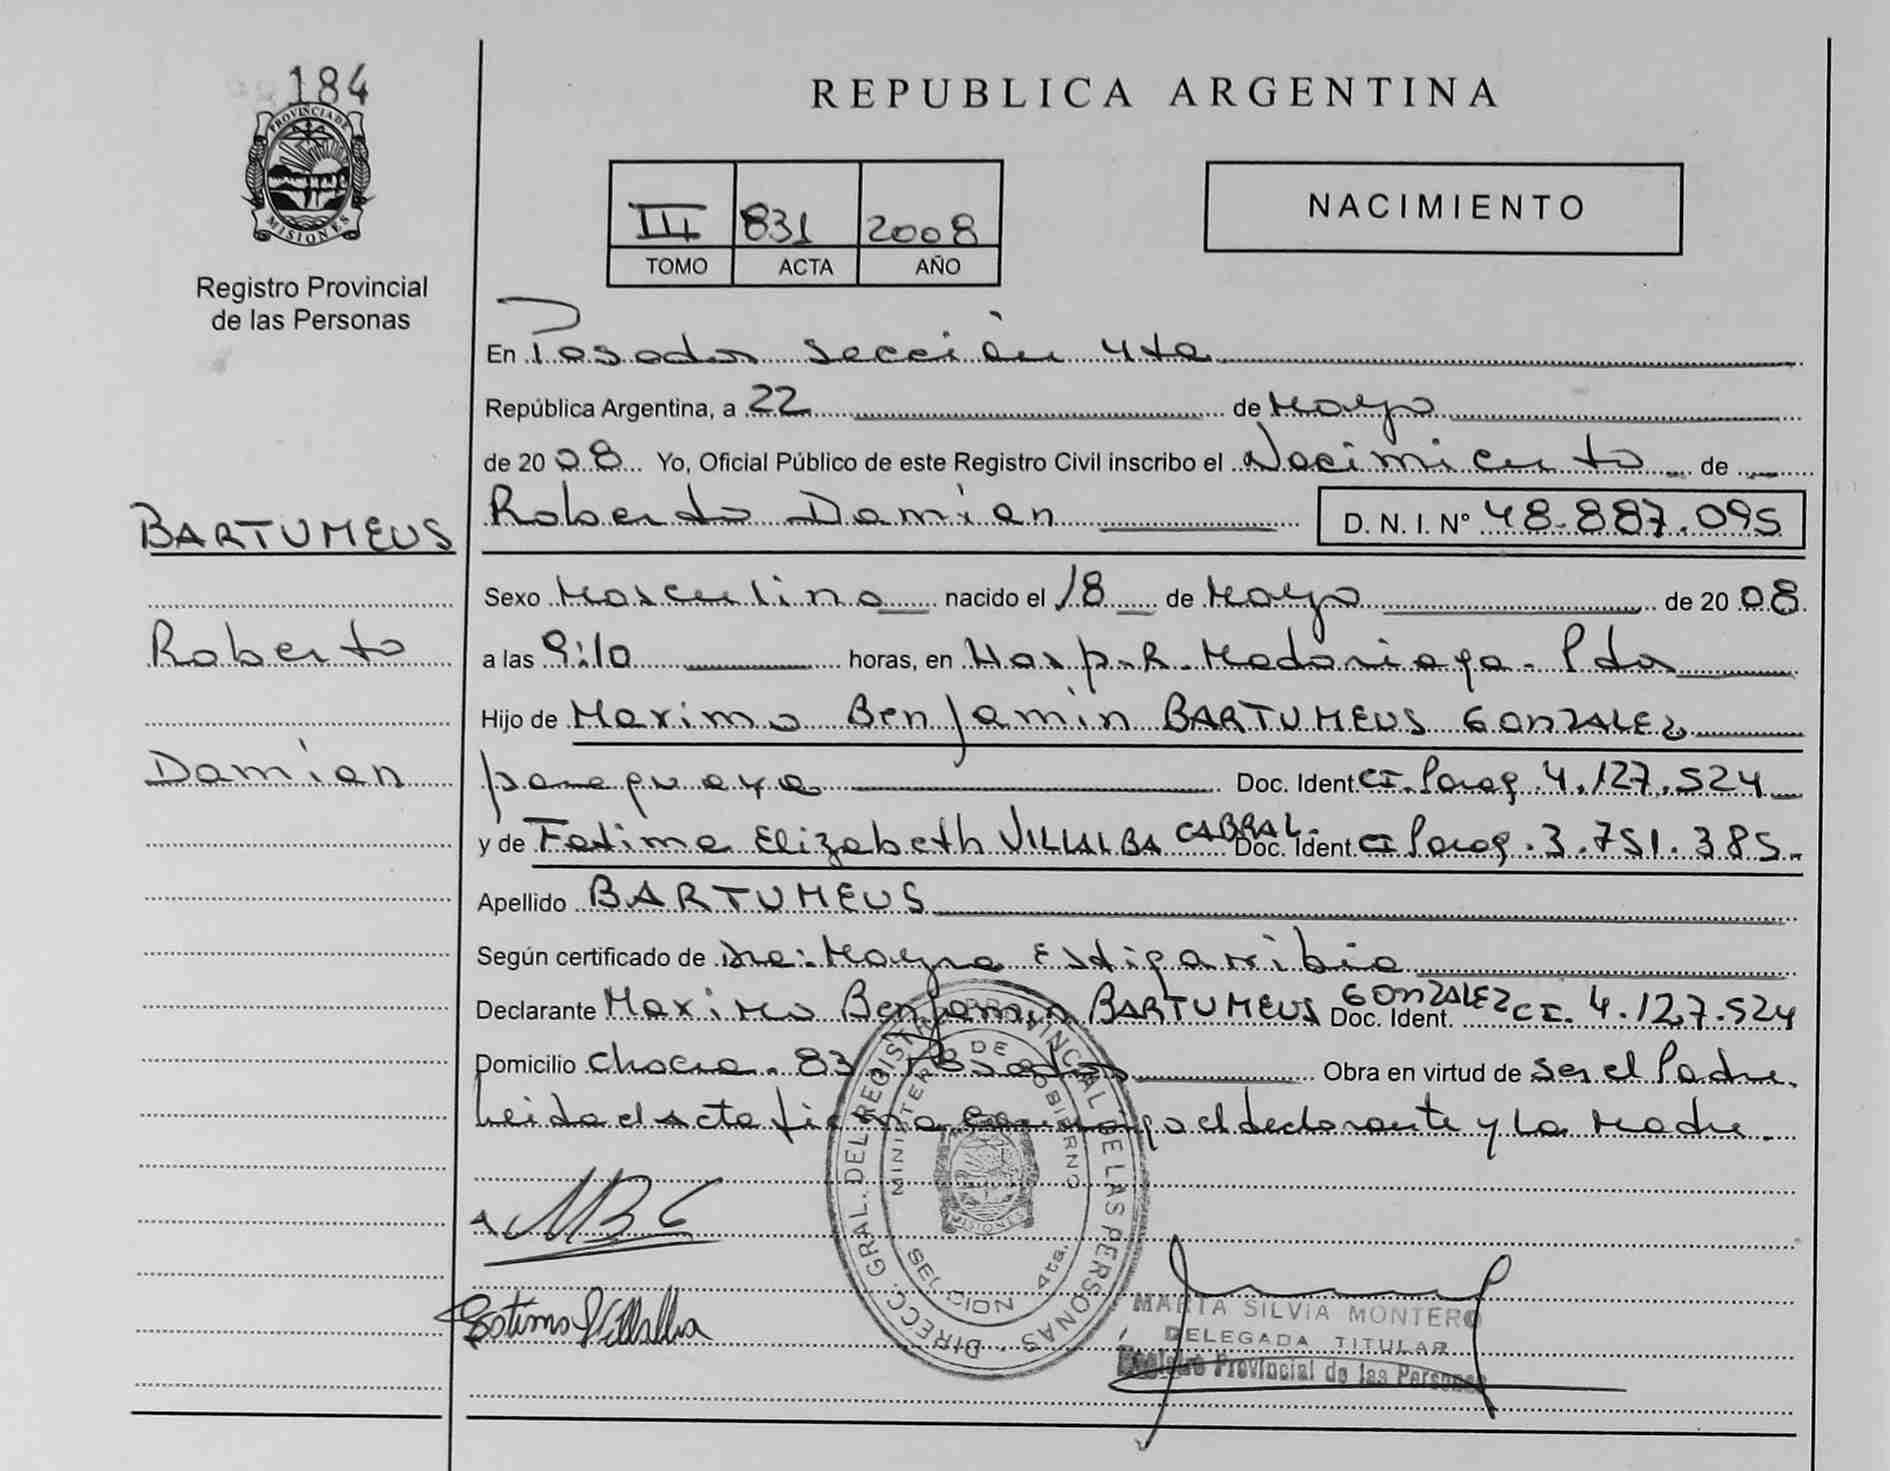 184
PROVINCIA DE
MISIONES
Registro Provincial
de las Personas
REPUBLICA ARGENTINA
III 831 2008
TOMO ACTA AÑO
NACIMIENTO
En Posadas Sección 4ta
República Argentina, a 22 de Mayo
de 2008 Yo, Oficial Público de este Registro Civil inscribo el Nacimiento de
BARTUMEUS
Roberto Damian
D. N. I. Nº 48.887.095
Sexo Masculino nacido el 18 de Mayo de 2008
Roberto
a las 9:10 horas, en Hosp. R. Madariaga - Pdas
Hijo de Maximo Benjamin BARTUMEUS GONZALEZ
Damian
paraguaya Doc. Ident. CI. Parag. 4.127.524
y de Fatima Elizabeth VILLALBA CABRAL - Doc. Ident. CI Parag. 3.751.385.-
Apellido BARTUMEUS
Según certificado de Dra: Mayra Estigarribia
Declarante Maximo Benjamin BARTUMEUS GONZALEZ Doc. Ident. CI. 4.127.524
Domicilio Chacra. 83. Posadas Obra en virtud de ser el Padre.
Leida el Acta firma conmigo el declarante y La Madre.-
DIRECC. GRAL. DEL REGISTRO PROVINCIAL DE LAS PERSONAS
MINISTERIO DE GOBIERNO
MISIONES
SECCION 4ta.
Fatima Villalba
MARIA SILVIA MONTERO
DELEGADA TITULAR
Registro Provincial de las Personas